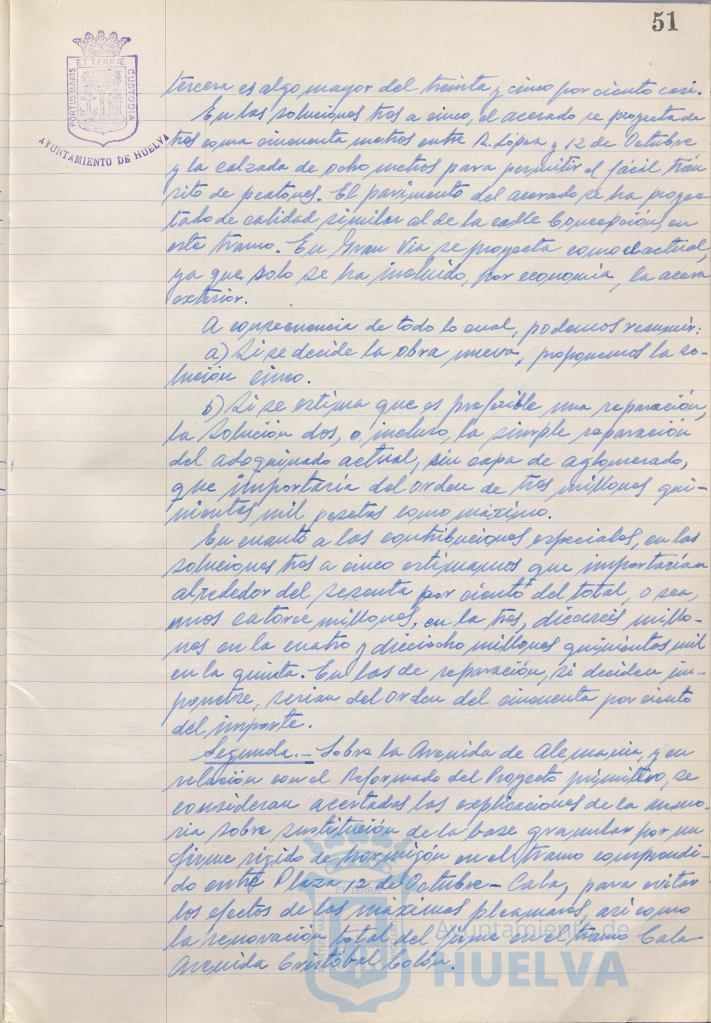 51
PORTUS MARIS
ET TERRÆ
CUSTODIA
AYUNTAMIENTO DE HUELVA
tercera es algo mayor del treinta y cinco por ciento casi.
En las soluciones tres a cinco, el acerado se proyecta de
tres coma cincuenta metros entre R. López y 12 de Octubre
y la calzada de ocho metros para permitir el fácil trán
sito de peatones. El pavimento del acerado se ha proyec-
tado de calidad similar al de la calle Concepción, en
este tramo. En Gran Via se proyecta como el actual,
ya que solo se ha incluido, por economía, la acera
exterior.
A consecuencia de todo lo cual, podemos resumir:
a) Si se decide la obra nueva, proponemos la so-
lución cinco.
b) Si se estima que es preferible una reparación,
la solución dos, o, incluso, la simple reparación
del adoquinado actual, sin capa de aglomerado,
que importaría del orden de tres millones qui-
nientas mil pesetas como máximo.
En cuanto a las contribuciones especiales, en las
soluciones tres a cinco estimamos que importarían
alrededor del sesenta por ciento del total, o sea,
unos catorce millones, en la tres, dieciseis millo-
nes en la cuatro y dieciocho millones quinientas mil
en la quinta. En las de reparación, si deciden im-
ponerse, serían del orden del cincuenta por ciento
del importe.
Segunda.- Sobre la Avenida de Alemania, y en
relación con el Reformado del Proyecto primitivo, se
consideran acertadas las explicaciones de la memo-
ria sobre sustitución de la base granular por un
firme rígido de hormigón en el tramo comprendi-
do entre Plaza 12 de Octubre - Cala, para evitar
los efectos de las máximas pleamares, así como
la renovación total del firme en el tramo Cala
Avenida Cristóbal Colón.
Ayuntamiento de
HUELVA